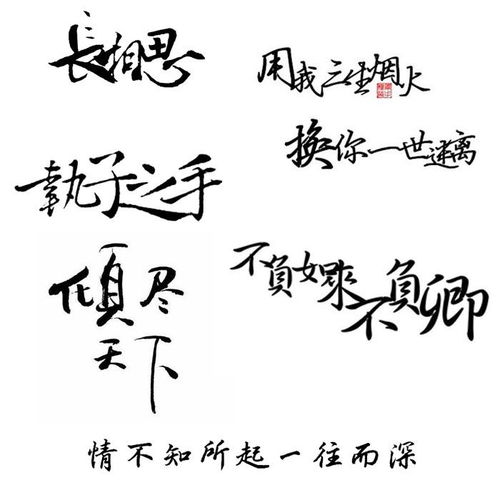 長相思
用我三生烟火
換你一世迷离
執子之手
不負如來
不負卿
傾尽
天下
情不知所起一往而深